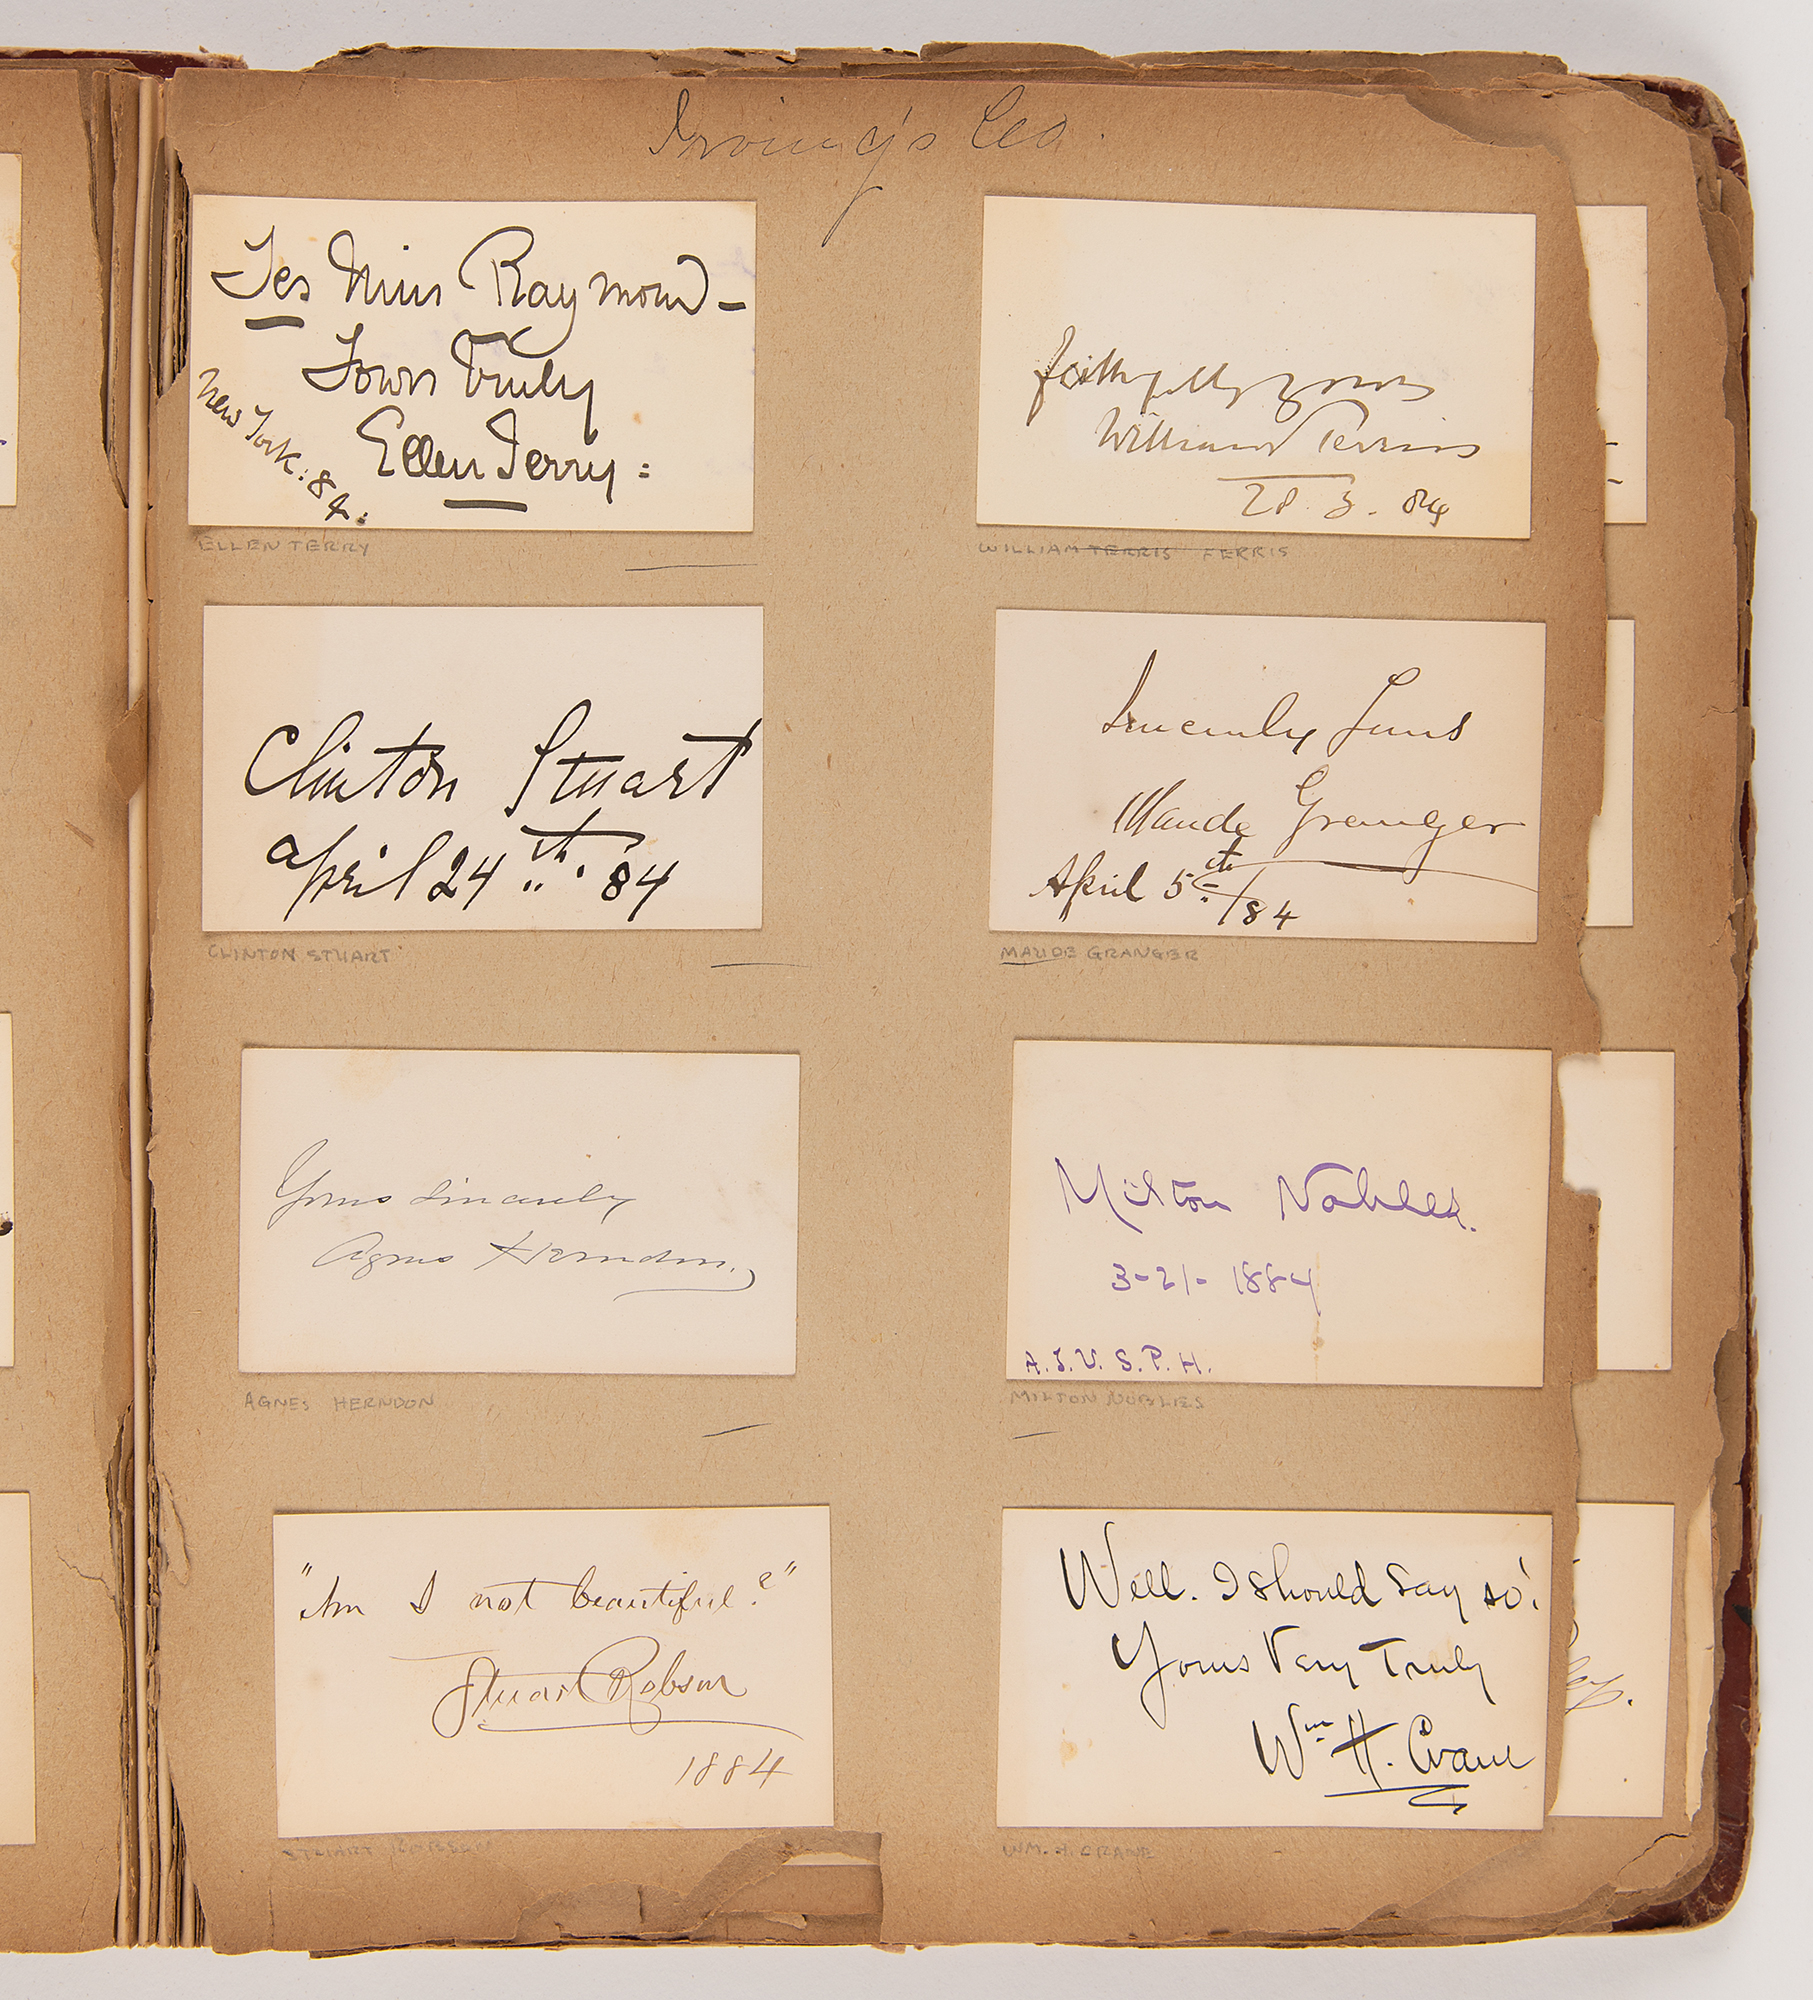 Irving's Co.
Yes Miss Raymond –
Yours Truly
Ellen Terry:
New York: 84:
ELLEN TERRY
faithfully yours
William Terriss
28. 3. 84
WILLIAM TERRIS FERRIS
Clinton Stuart
April 24th. '84
CLINTON STUART
Sincerely Yours
Maude Granger
April 5th/84
MAUDE GRANGER
Yours Sincerely
Agnes Herndon.
AGNES HERNDON
Milton Nobles.
3-21-1884
A.S.V. S.P.H.
MILTON NOBLES
"Am I not beautiful?"
Stuart Robson
1884
STUART ROBSON
Well. I should say so!
Yours Very Truly
Wm H. Crane
WM. H. CRANE